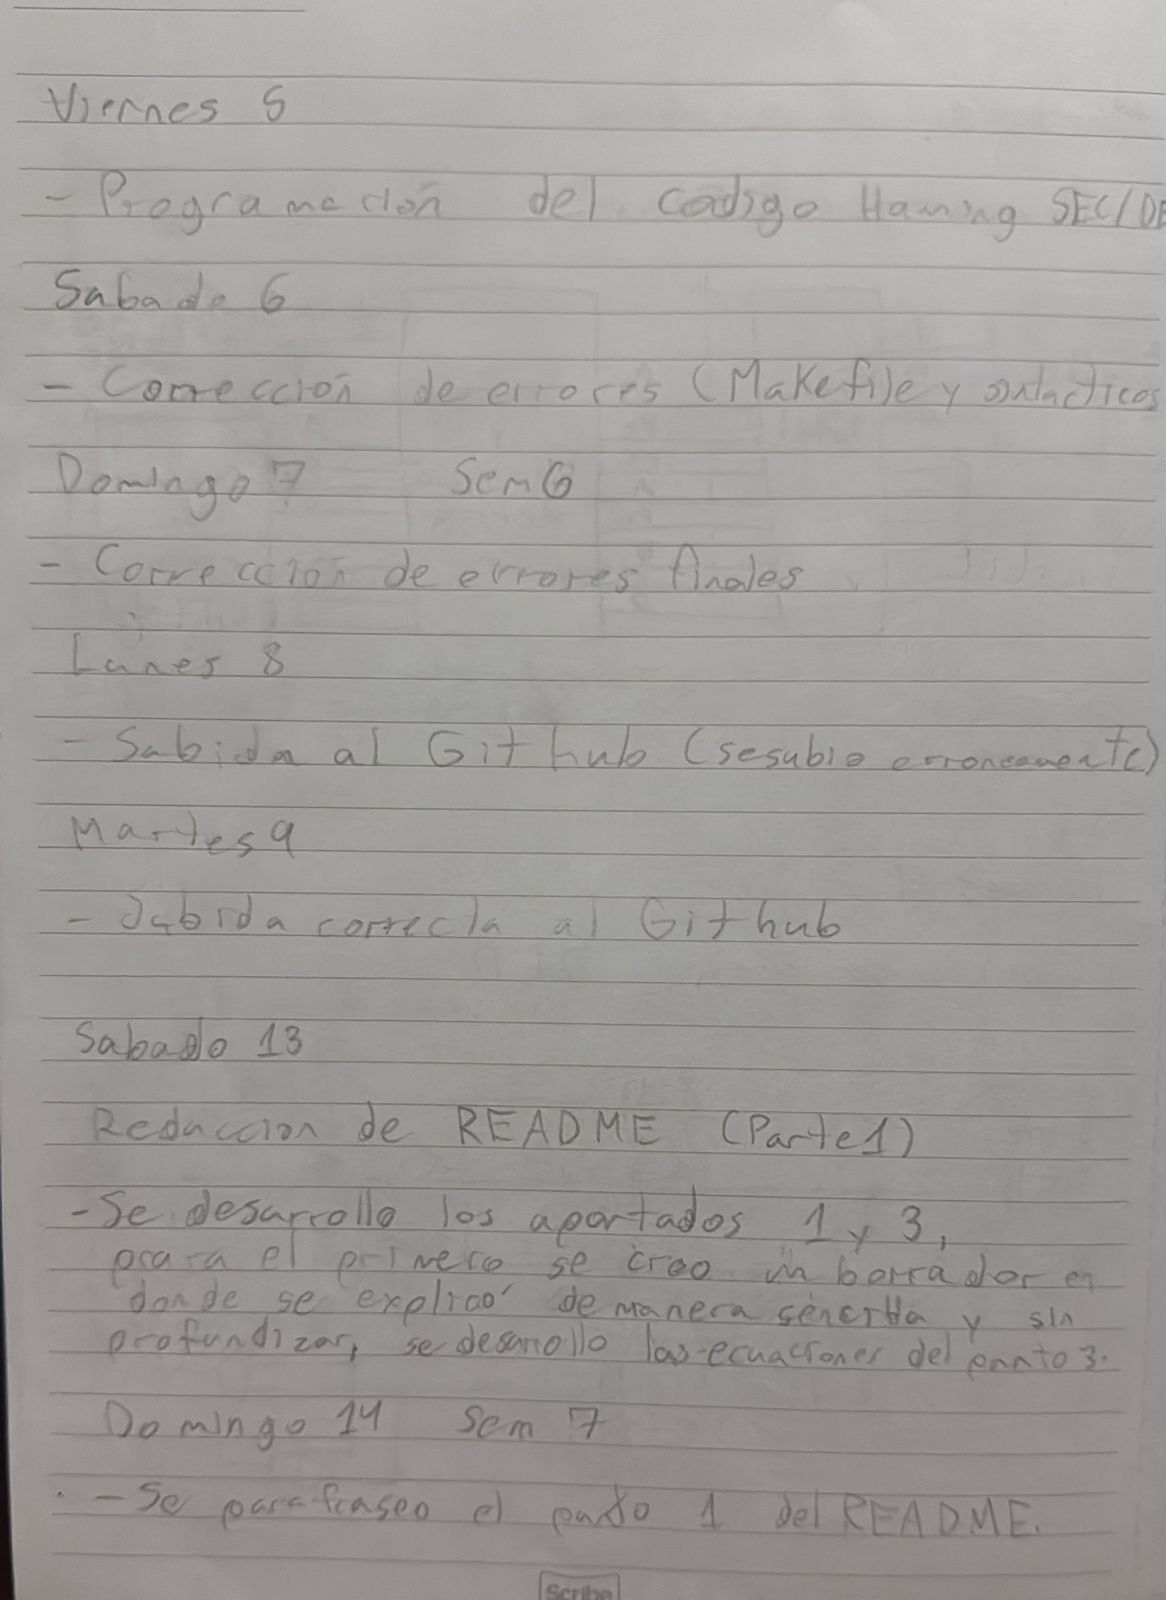 Viernes 5
- Programacion del codigo Haming SEC/DE
Sabado 6
- Correccion de errores (Makefile y sintacticos
Domingo 7 Sem 6
- Correccion de errores finales
Lunes 8
- Subida al Github (se subio erroneamente)
Martes 9
- Subida correcta al Github
Sabado 13
Redaccion de README (Parte 1)
- Se desarrollo los apartados 1 y 3,
para el primero se creo un borrador en
donde se explicó de manera sencilla y sin
profundizar, se desarrollo las ecuaciones del punto 3.
Domingo 14 Sem 7
- Se parafraseo el punto 1 del README.
Scribe